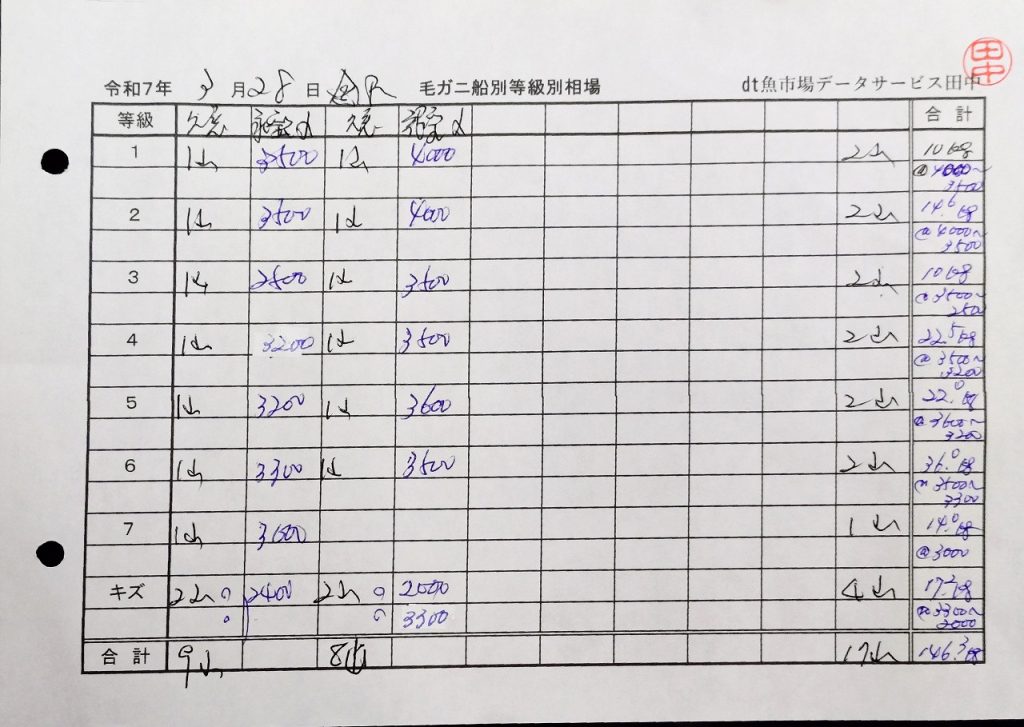 令和7年 3月28日 毛ガニ船別等級別相場 dt魚市場データサービス田中
田中
等級 合計
1 1山 3500 1山 4000 2山 10kg
@4000~
3500
2 1山 3500 1山 4000 2山 14.6kg
@4000~
3500
3 1山 2500 1山 3500 2山 10kg
@3500~
2500
4 1山 3200 1山 3500 2山 22.5kg
@3500~
3200
5 1山 3200 1山 3600 2山 22.0kg
@3600~
3200
6 1山 3300 1山 3500 2山 36.0kg
@3500~
3300
7 1山 1山 14.0kg
@3000
キズ 2山 2400 2山 2000 4山 17.2kg
3300 @3300~
2000
合計 9山 8山 17山 146.3kg